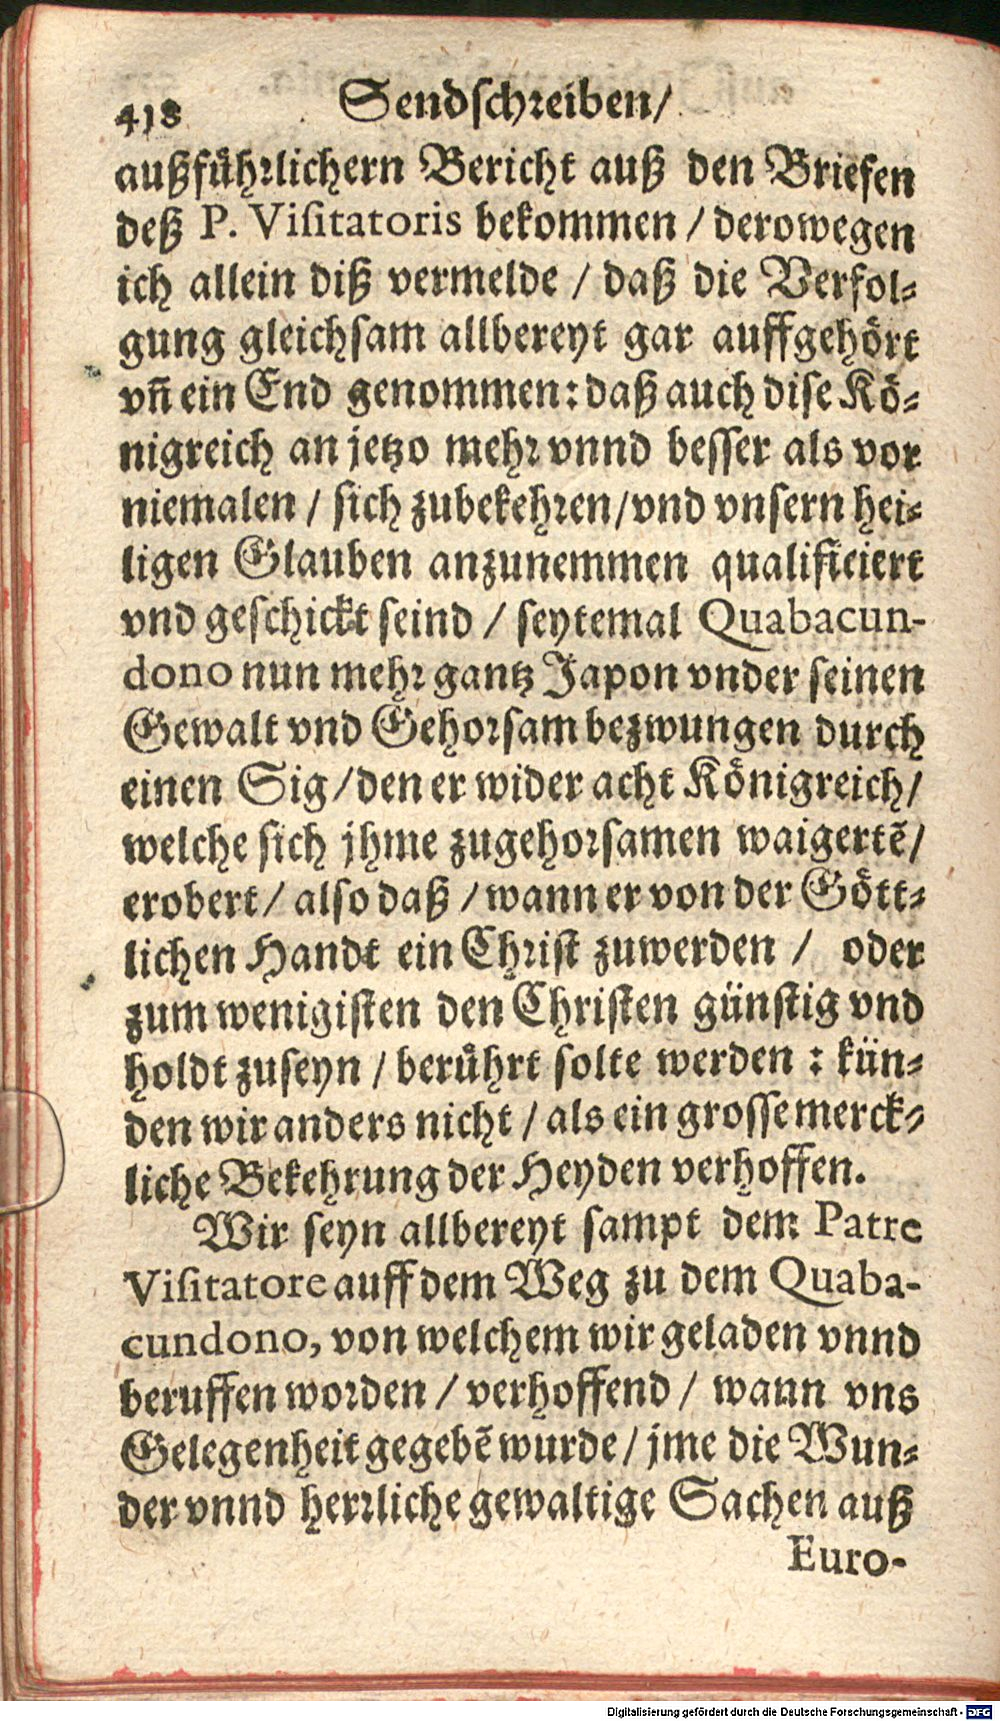 418 Sendschreiben/
außfuͤhrlichern Bericht auß den Briefen
deß P. Visitatoris bekommen / derowegen
ich allein diß vermelde / daß die Verfol-
gung gleichsam allbereyt gar auffgehoͤrt
vñ ein End genommen: daß auch dise Koͤ-
nigreich an jetzo mehr vnnd besser als vor
niemalen / sich zubekehren/vnd vnsern hei-
ligen Glauben anzunemmen qualificiert
vnd geschickt seind / seytemal Quabacun-
dono nun mehr gantz Japon vnder seinen
Gewalt vnd Gehorsam bezwungen durch
einen Sig/den er wider acht Koͤnigreich/
welche sich jhme zugehorsamen waigertẽ/
erobert/ also daß / wann er von der Goͤtt-
lichen Handt ein Christ zuwerden / oder
zum wenigisten den Christen günstig vnd
holdt zuseyn / beruͤhrt solte werden : kün-
den wir anders nicht / als ein grosse merck-
liche Bekehrung der Heyden verhoffen.
Wir seyn allbereyt sampt dem Patre
Visitatore auff dem Weg zu dem Quaba-
cundono, von welchem wir geladen vnnd
beruffen worden / verhoffend / wann vns
Gelegenheit gegebẽ wurde/ jme die Wun-
der vnnd herrliche gewaltige Sachen auß
Euro-
Digitalisierung gefördert durch die Deutsche Forschungsgemeinschaft - DFG